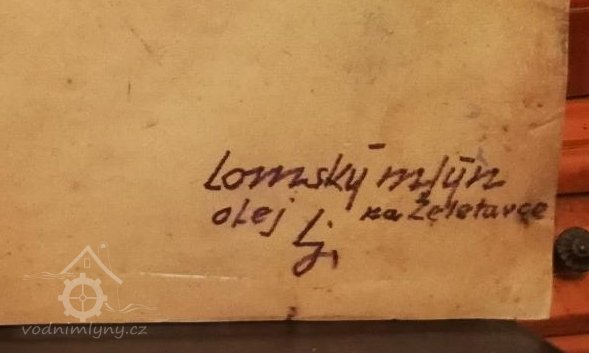 Lomský mlýn
olej na Želetavce
Lj.
vodnimlyny.cz